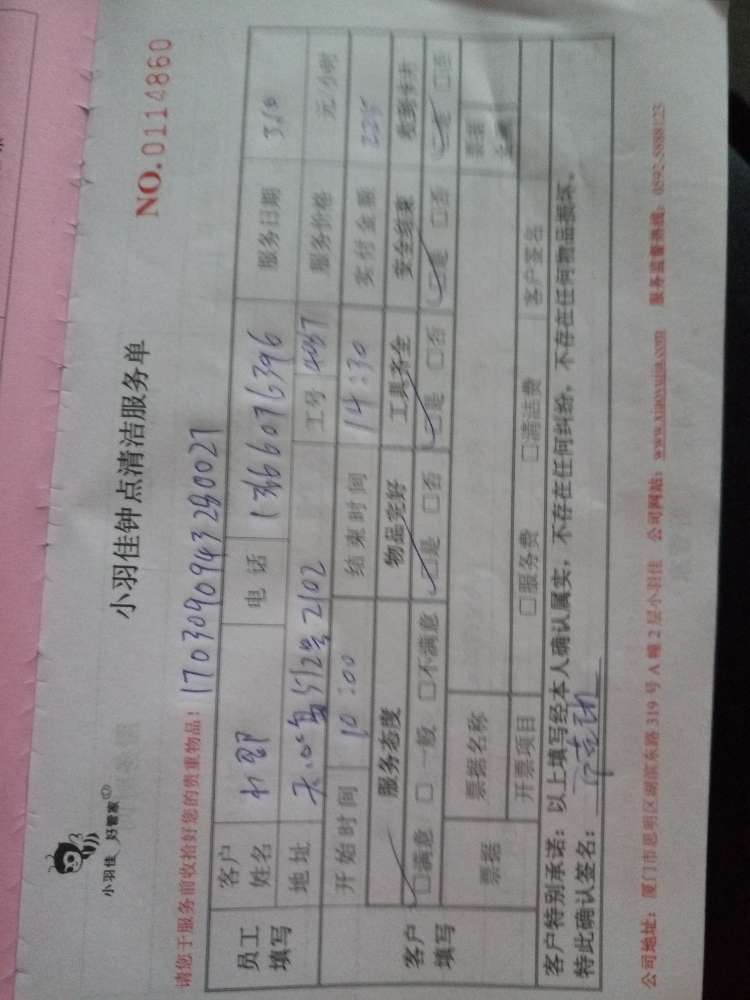 小羽佳 好管家
小羽佳钟点清洁服务单
NO.0114860
请您于服务前收拾好您的贵重物品! 1703090943280027
员工填写 客户姓名 电话 13666076396 服务日期
地址 512号2102 工号 服务价格 元/小时
客户填写 开始时间 10:00 结束时间 14:30 实付金额 225
服务态度 物品完好 工具齐全 安全结束 收到卡片
□满意 □一般 □不满意 □是 □否 □是 □否 □是 □否 □是 □否
票据 票据名称 票据金额
开票项目 □服务费 □清洁费 客户签名
客户特别承诺：以上填写经本人确认属实，不存在任何纠纷，不存在任何物品损坏。
特此确认签名：
公司地址：厦门市思明区湖滨东路319号A幢2层小羽佳 公司网站：www.xiaoyujia.com 服务监督热线：0592-5888123